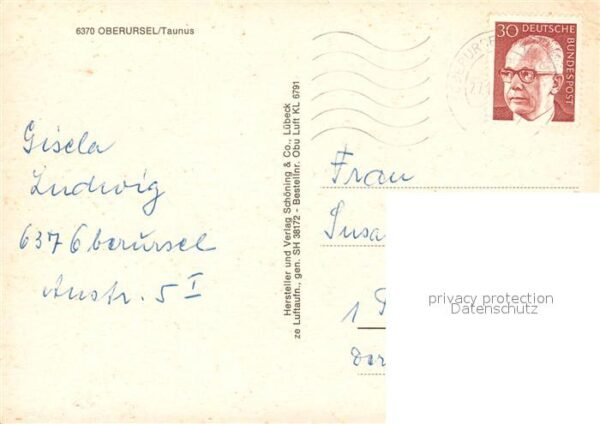 6370 OBERURSEL/Taunus
30 DEUTSCHE
BUNDESPOST
Gisela
Ludwig
637 Oberursel
Austr. 5 I
Hersteller und Verlag Schöning & Co., Lübeck
ze Luftaufn., gen. SH 38172 - Bestellnr. Obu Luft KL 6791
Frau
Susa
1
Dor
privacy protection
Datenschutz